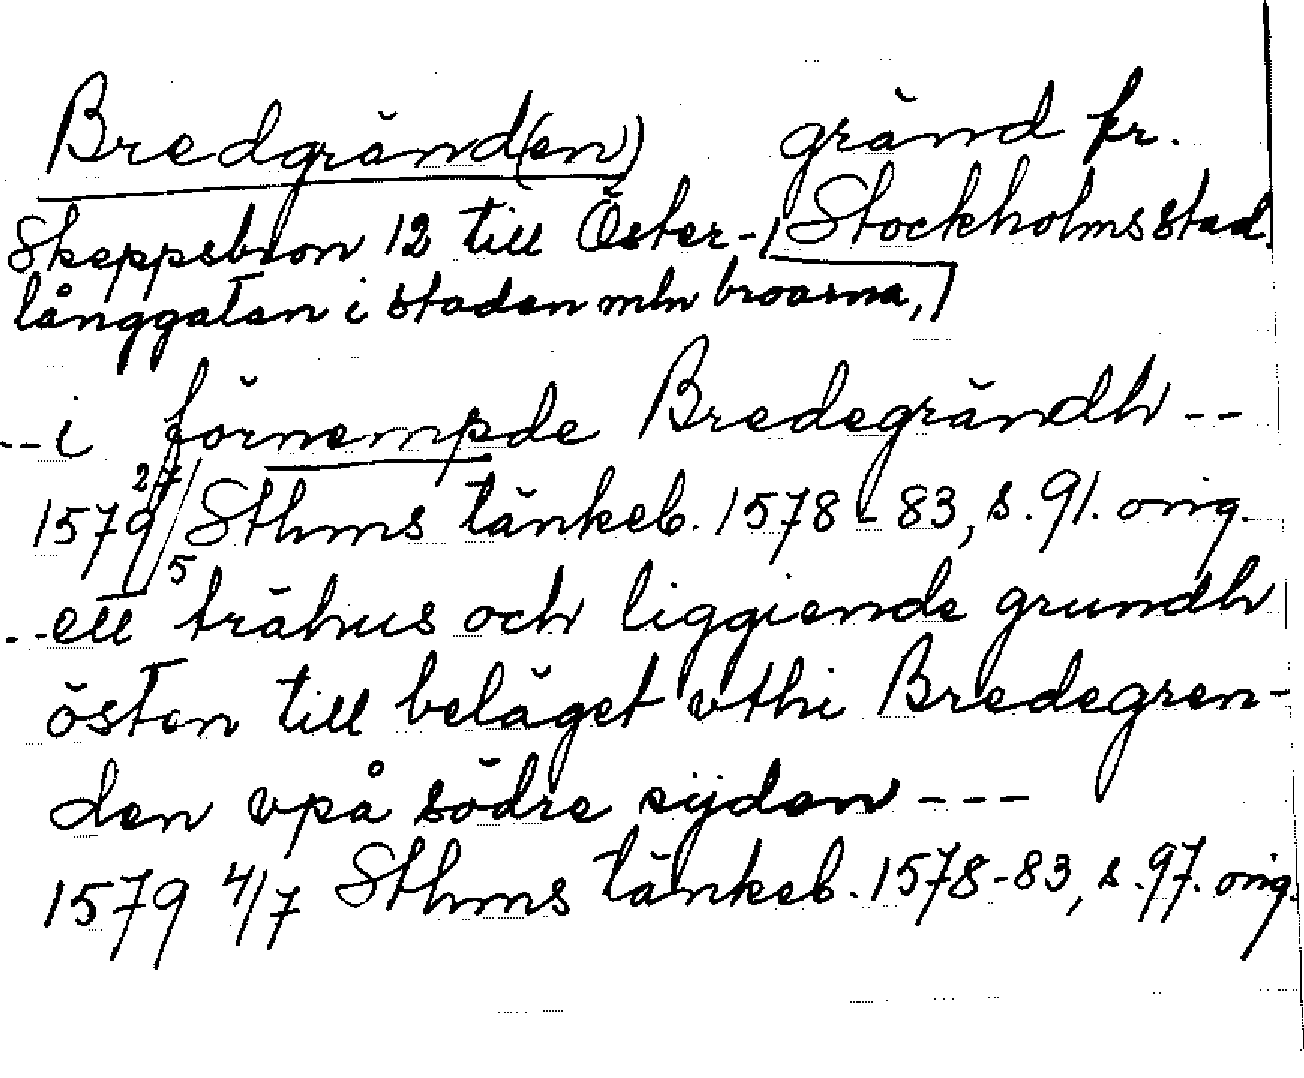 Bredgränd(en) gränd fr.
Skeppsbron 12 till Öster- Stockholms stad
långgatan i staden mln broarna,
--i förnempde Bredegrändh --
1579 27/5 Sthms tänkeb. 1578-83, s. 91. orig.
--ett trähus och liggiende grundh
östen till beläget vthi Bredegren-
den vpå södre sijden ---
1579 4/7 Sthms tänkeb. 1578-83, s. 97. orig.